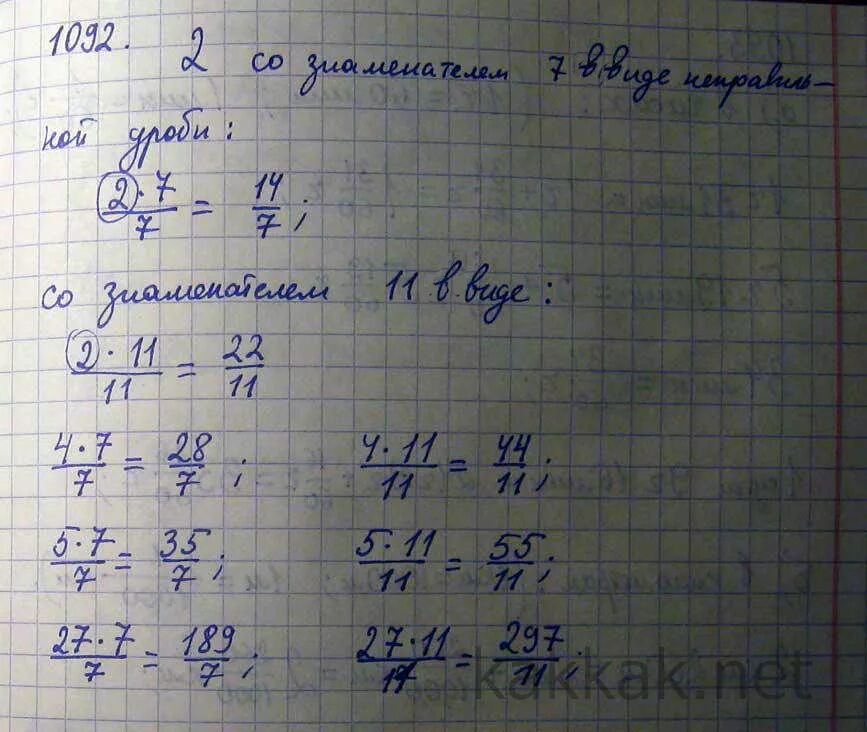 1092. 2 со знаменателем 7 в виде неправиль-
ной дроби:
2·7/7 = 14/7;
со знаменателем 11 в виде:
2·11/11 = 22/11
4·7/7 = 28/7; 4·11/11 = 44/11;
5·7/7 = 35/7; 5·11/11 = 55/11;
27·7/7 = 189/7; 27·11/11 = 297/11;
kakkak.net